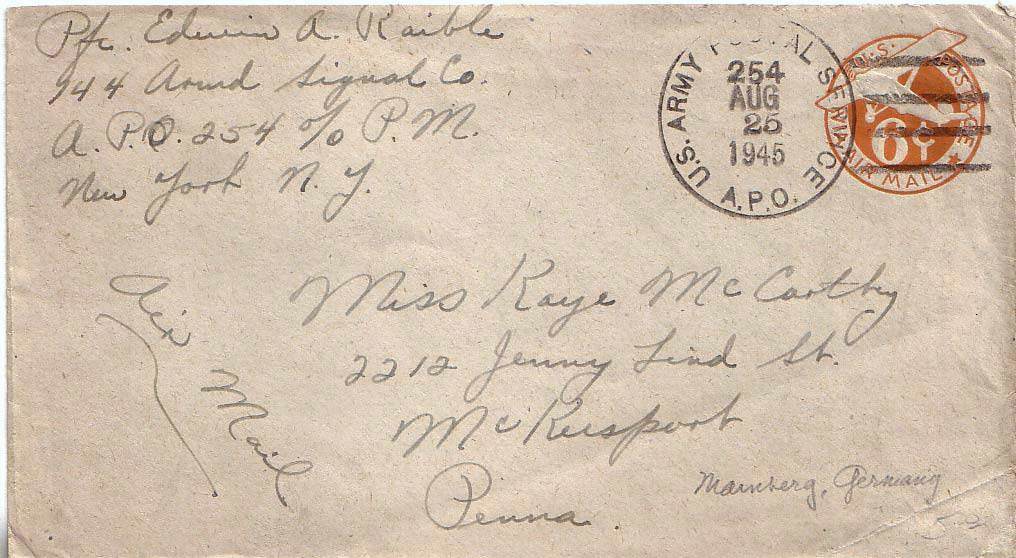 Pfc. Edwin A. Raible
144 Armd Signal Co.
A.P.O. 254 c/o P.M.
New York N.Y.
U.S. ARMY POSTAL SERVICE
A.P.O.
254
AUG
25
1945
U.S. POSTAGE
6¢
VIA AIR MAIL
Air Mail
Miss Kaye McCarthy
2212 Jenny Lind St.
McKeesport
Penna.
Mainberg, Germany